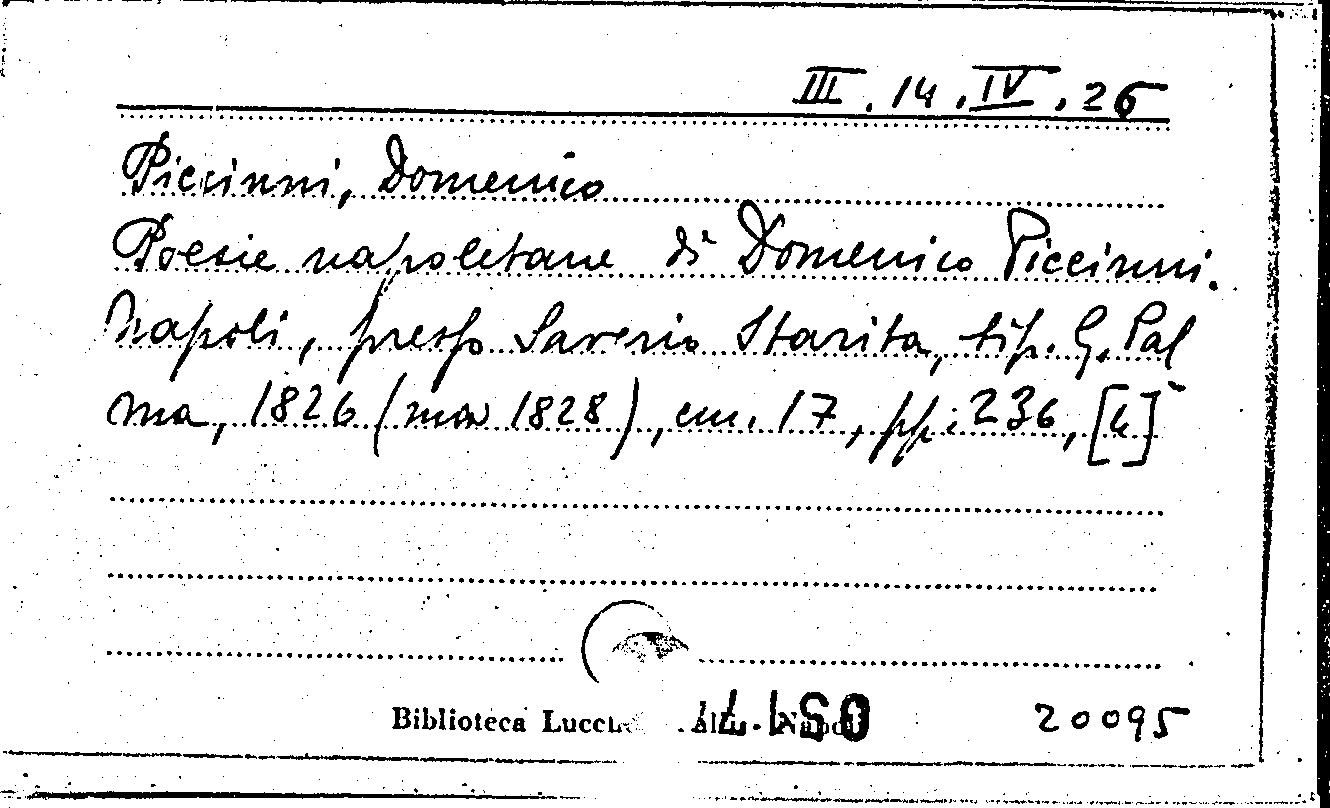 III. 14. IV. 26
Piccinni, Domenico
Poesie napoletane di Domenico Piccinni.
Napoli, presso Saverio Starita, tip. G. Pal
ma, 1826 (ma 1828), cm. 17, pp. 236, [4]
Biblioteca - Napoli
20095